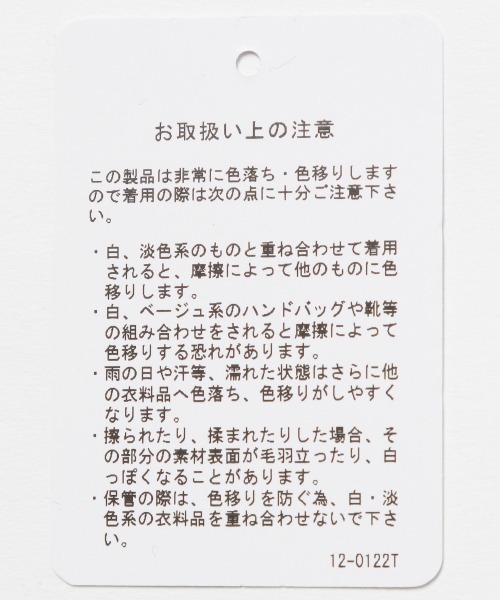 お取扱い上の注意
この製品は非常に色落ち・色移りします
ので着用の際は次の点に十分ご注意下さ
い。
・白、淡色系のものと重ね合わせて着用
されると、摩擦によって他のものに色
移りします。
・白、ベージュ系のハンドバッグや靴等
の組み合わせをされると摩擦によって
色移りする恐れがあります。
・雨の日や汗等、濡れた状態はさらに他
の衣料品へ色落ち、色移りがしやすく
なります。
・擦られたり、揉まれたりした場合、そ
の部分の素材表面が毛羽立ったり、白
っぽくなることがあります。
・保管の際は、色移りを防ぐ為、白・淡
色系の衣料品を重ね合わせないで下さ
い。
12-0122T